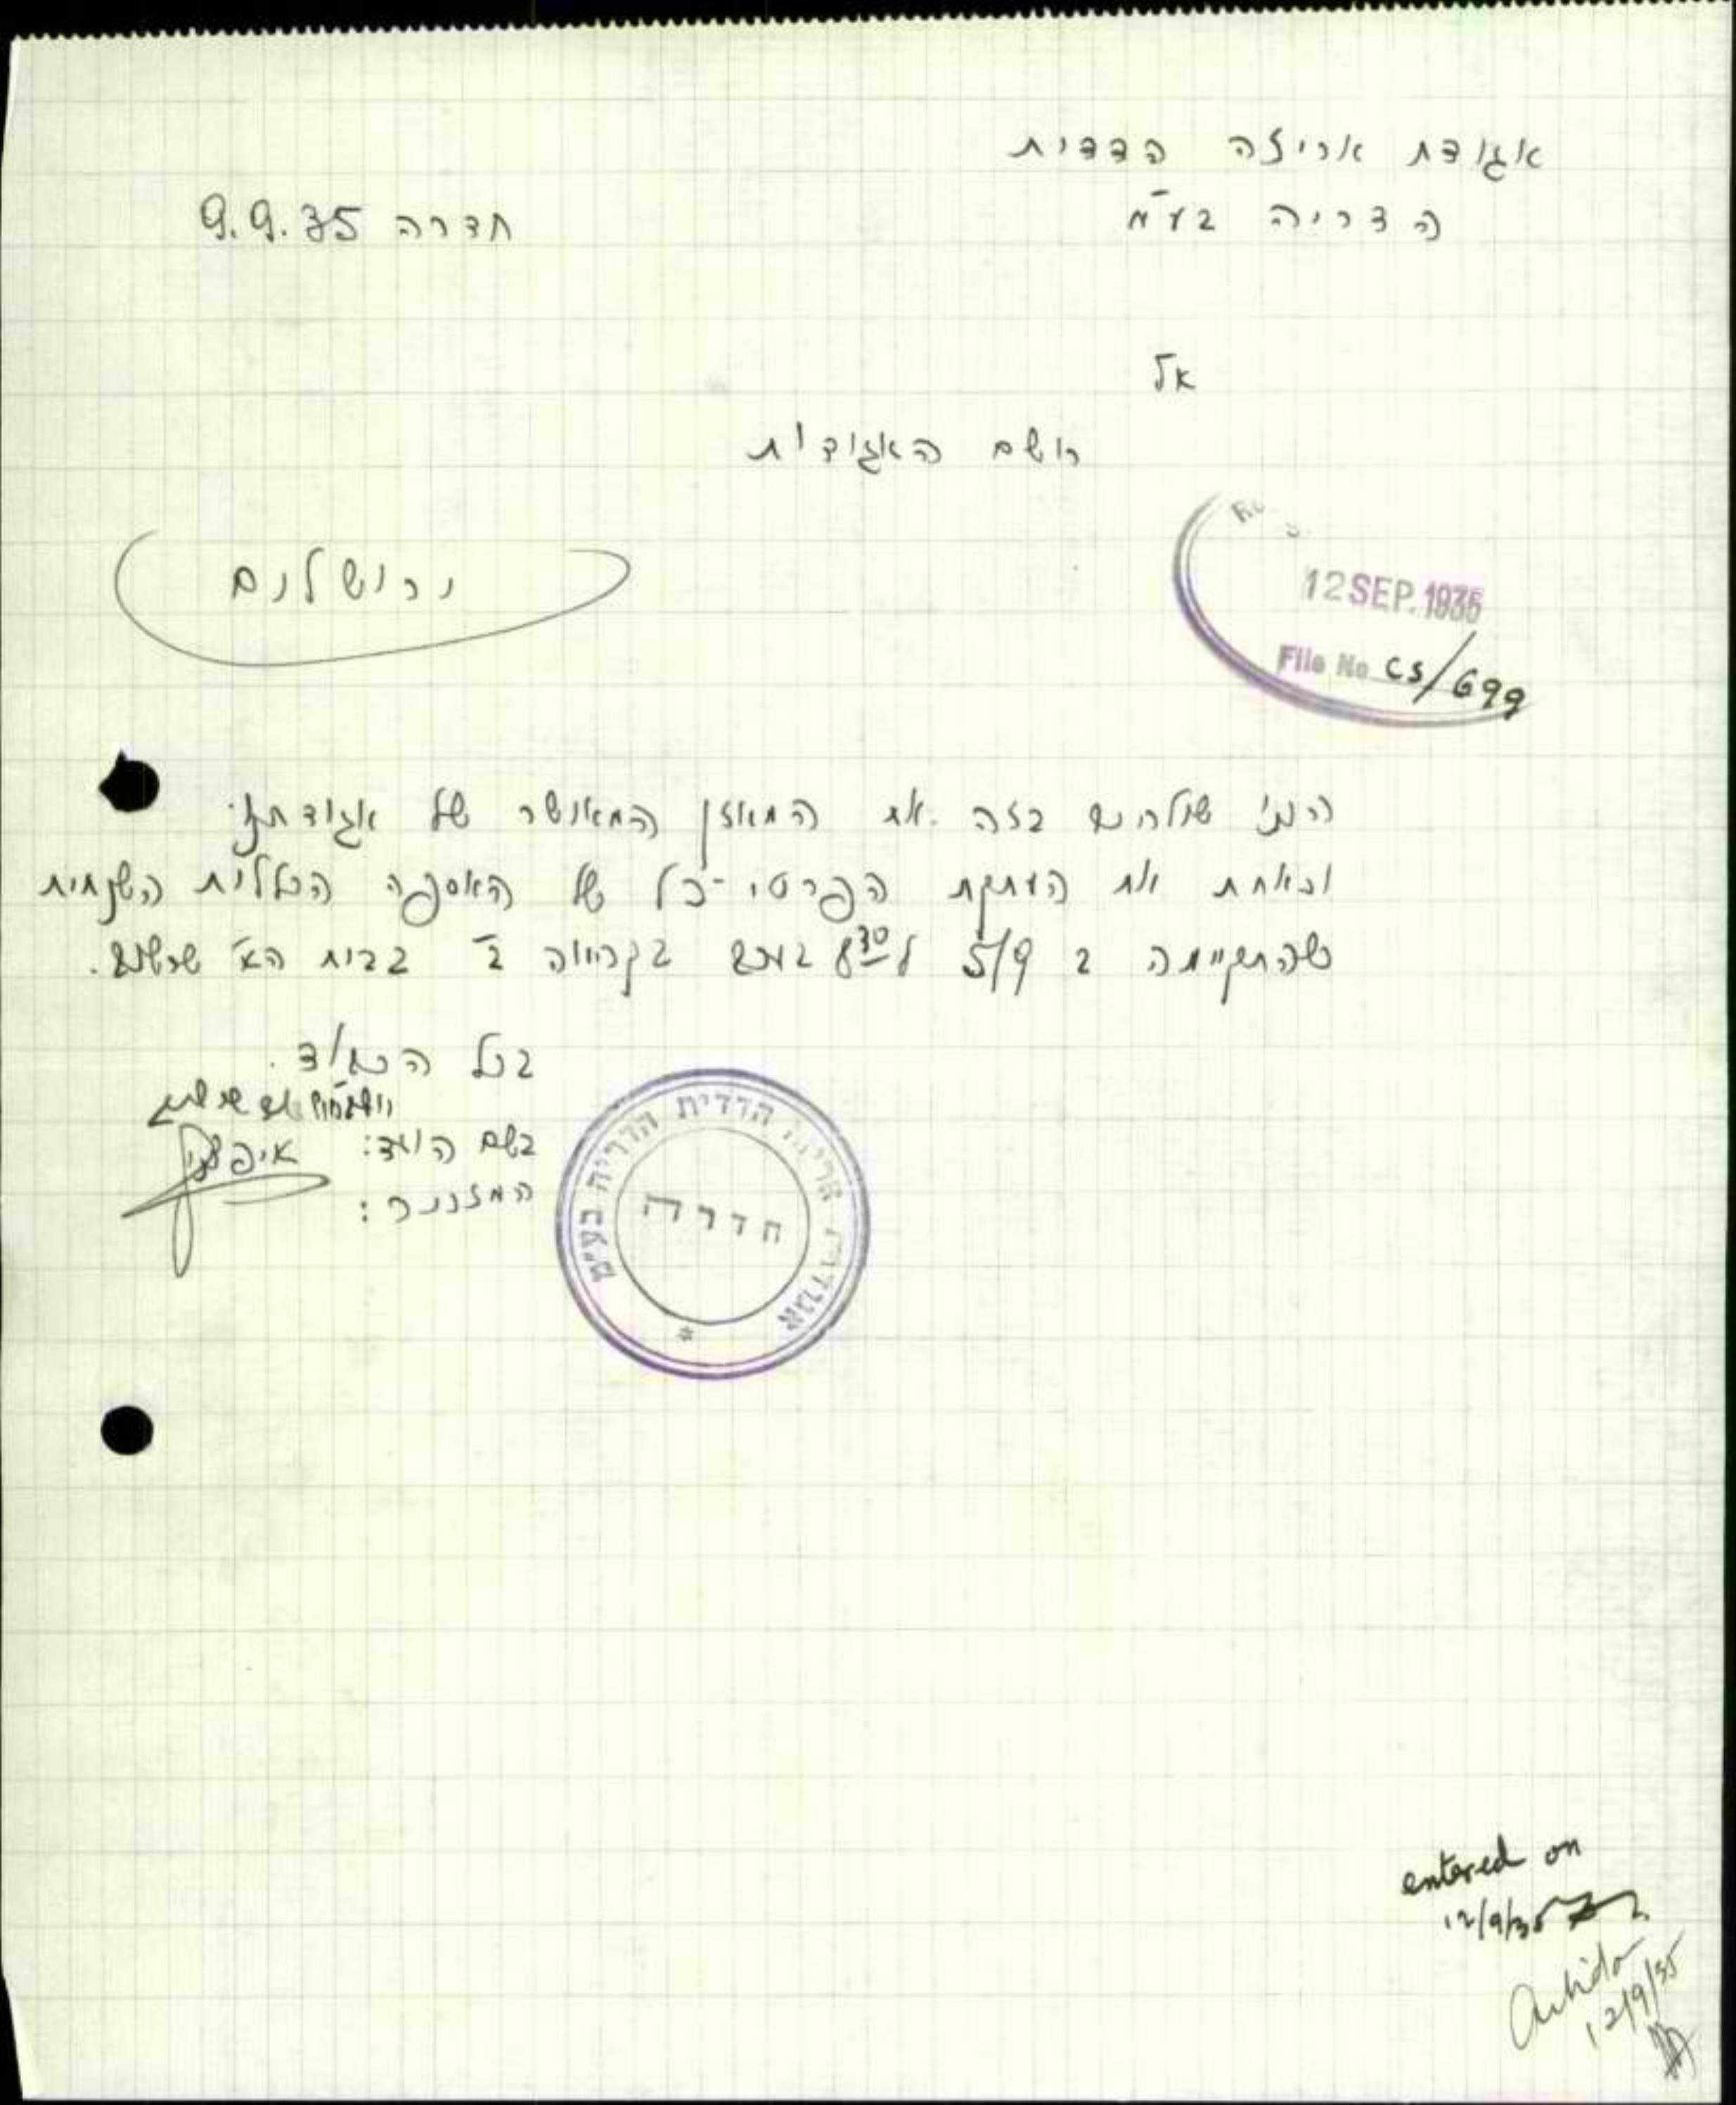 אגודת אריזה הדדית
הדריה בע״מ
חדרה 9.9.35
אל
רושם האגודות
ירושלים
12 SEP. 1935
File No CS/699
הנני שולחים בזה את המאזן המאושר של אגודתנו
ובאותו את העתקת הפרטי-כל של האספה הכללית השנתית
שהתקיימה ב 5/9 ל 8³⁰ בערב בקריאה ב׳ בבית הא׳
בכל הכבוד
בשם הועד:
המזכיר:
אגודת אריזה הדדית הדריה בע״מ
חדרה
entered on
12/9/35
12/9/35